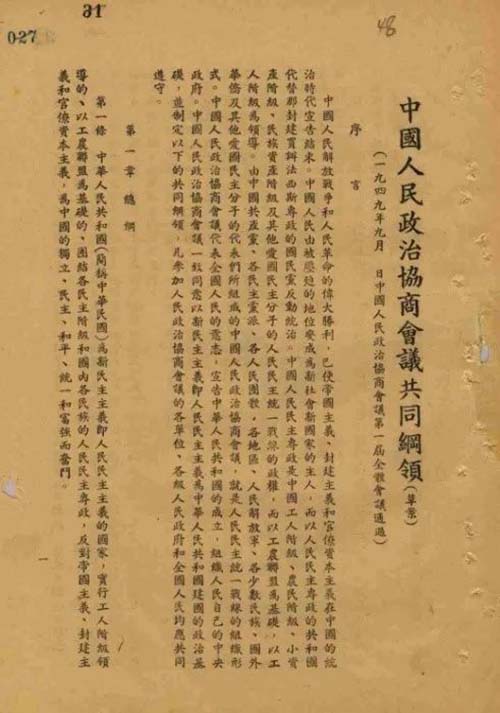 31
027
48
中國人民政治協商會議共同綱領(草案)
(一九四九年九月　日中國人民政治協商會議第一屆全體會議通過)
序　言
中國人民解放戰爭和人民革命的偉大勝利,已使帝國主義、封建主義和官僚資本主義在中國的統
治時代宣告結束。中國人民由被壓迫的地位變成為新社會新國家的主人,而以人民民主專政的共和國
代替那封建買辦法西斯專政的國民黨反動統治。中國人民民主專政是中國工人階級、農民階級、小資
產階級、民族資產階級及其他愛國民主分子的人民民主統一戰線的政權,而以工農聯盟為基礎,以工
人階級為領導。由中國共產黨、各民主黨派、各人民團體、各地區、人民解放軍、各少數民族、國外
華僑及其他愛國民主分子的代表們所組成的中國人民政治協商會議,就是人民民主統一戰線的組織形
式。中國人民政治協商會議代表全國人民的意志,宣告中華人民共和國的成立,組織人民自己的中央
政府。中國人民政治協商會議一致同意以新民主主義即人民民主主義為中華人民共和國建國的政治基
礎,並制定以下的共同綱領,凡參加人民政治協商會議的各單位、各級人民政府和全國人民均應共同
遵守。
第一章　總綱
第一條　中華人民共和國(簡稱中華民國)為新民主主義即人民民主主義的國家,實行工人階級領
導的、以工農聯盟為基礎的、團結各民主階級和國內各民族的人民民主專政,反對帝國主義、封建主
義和官僚資本主義,為中國的獨立、民主、和平、統一和富強而奮鬥。
一